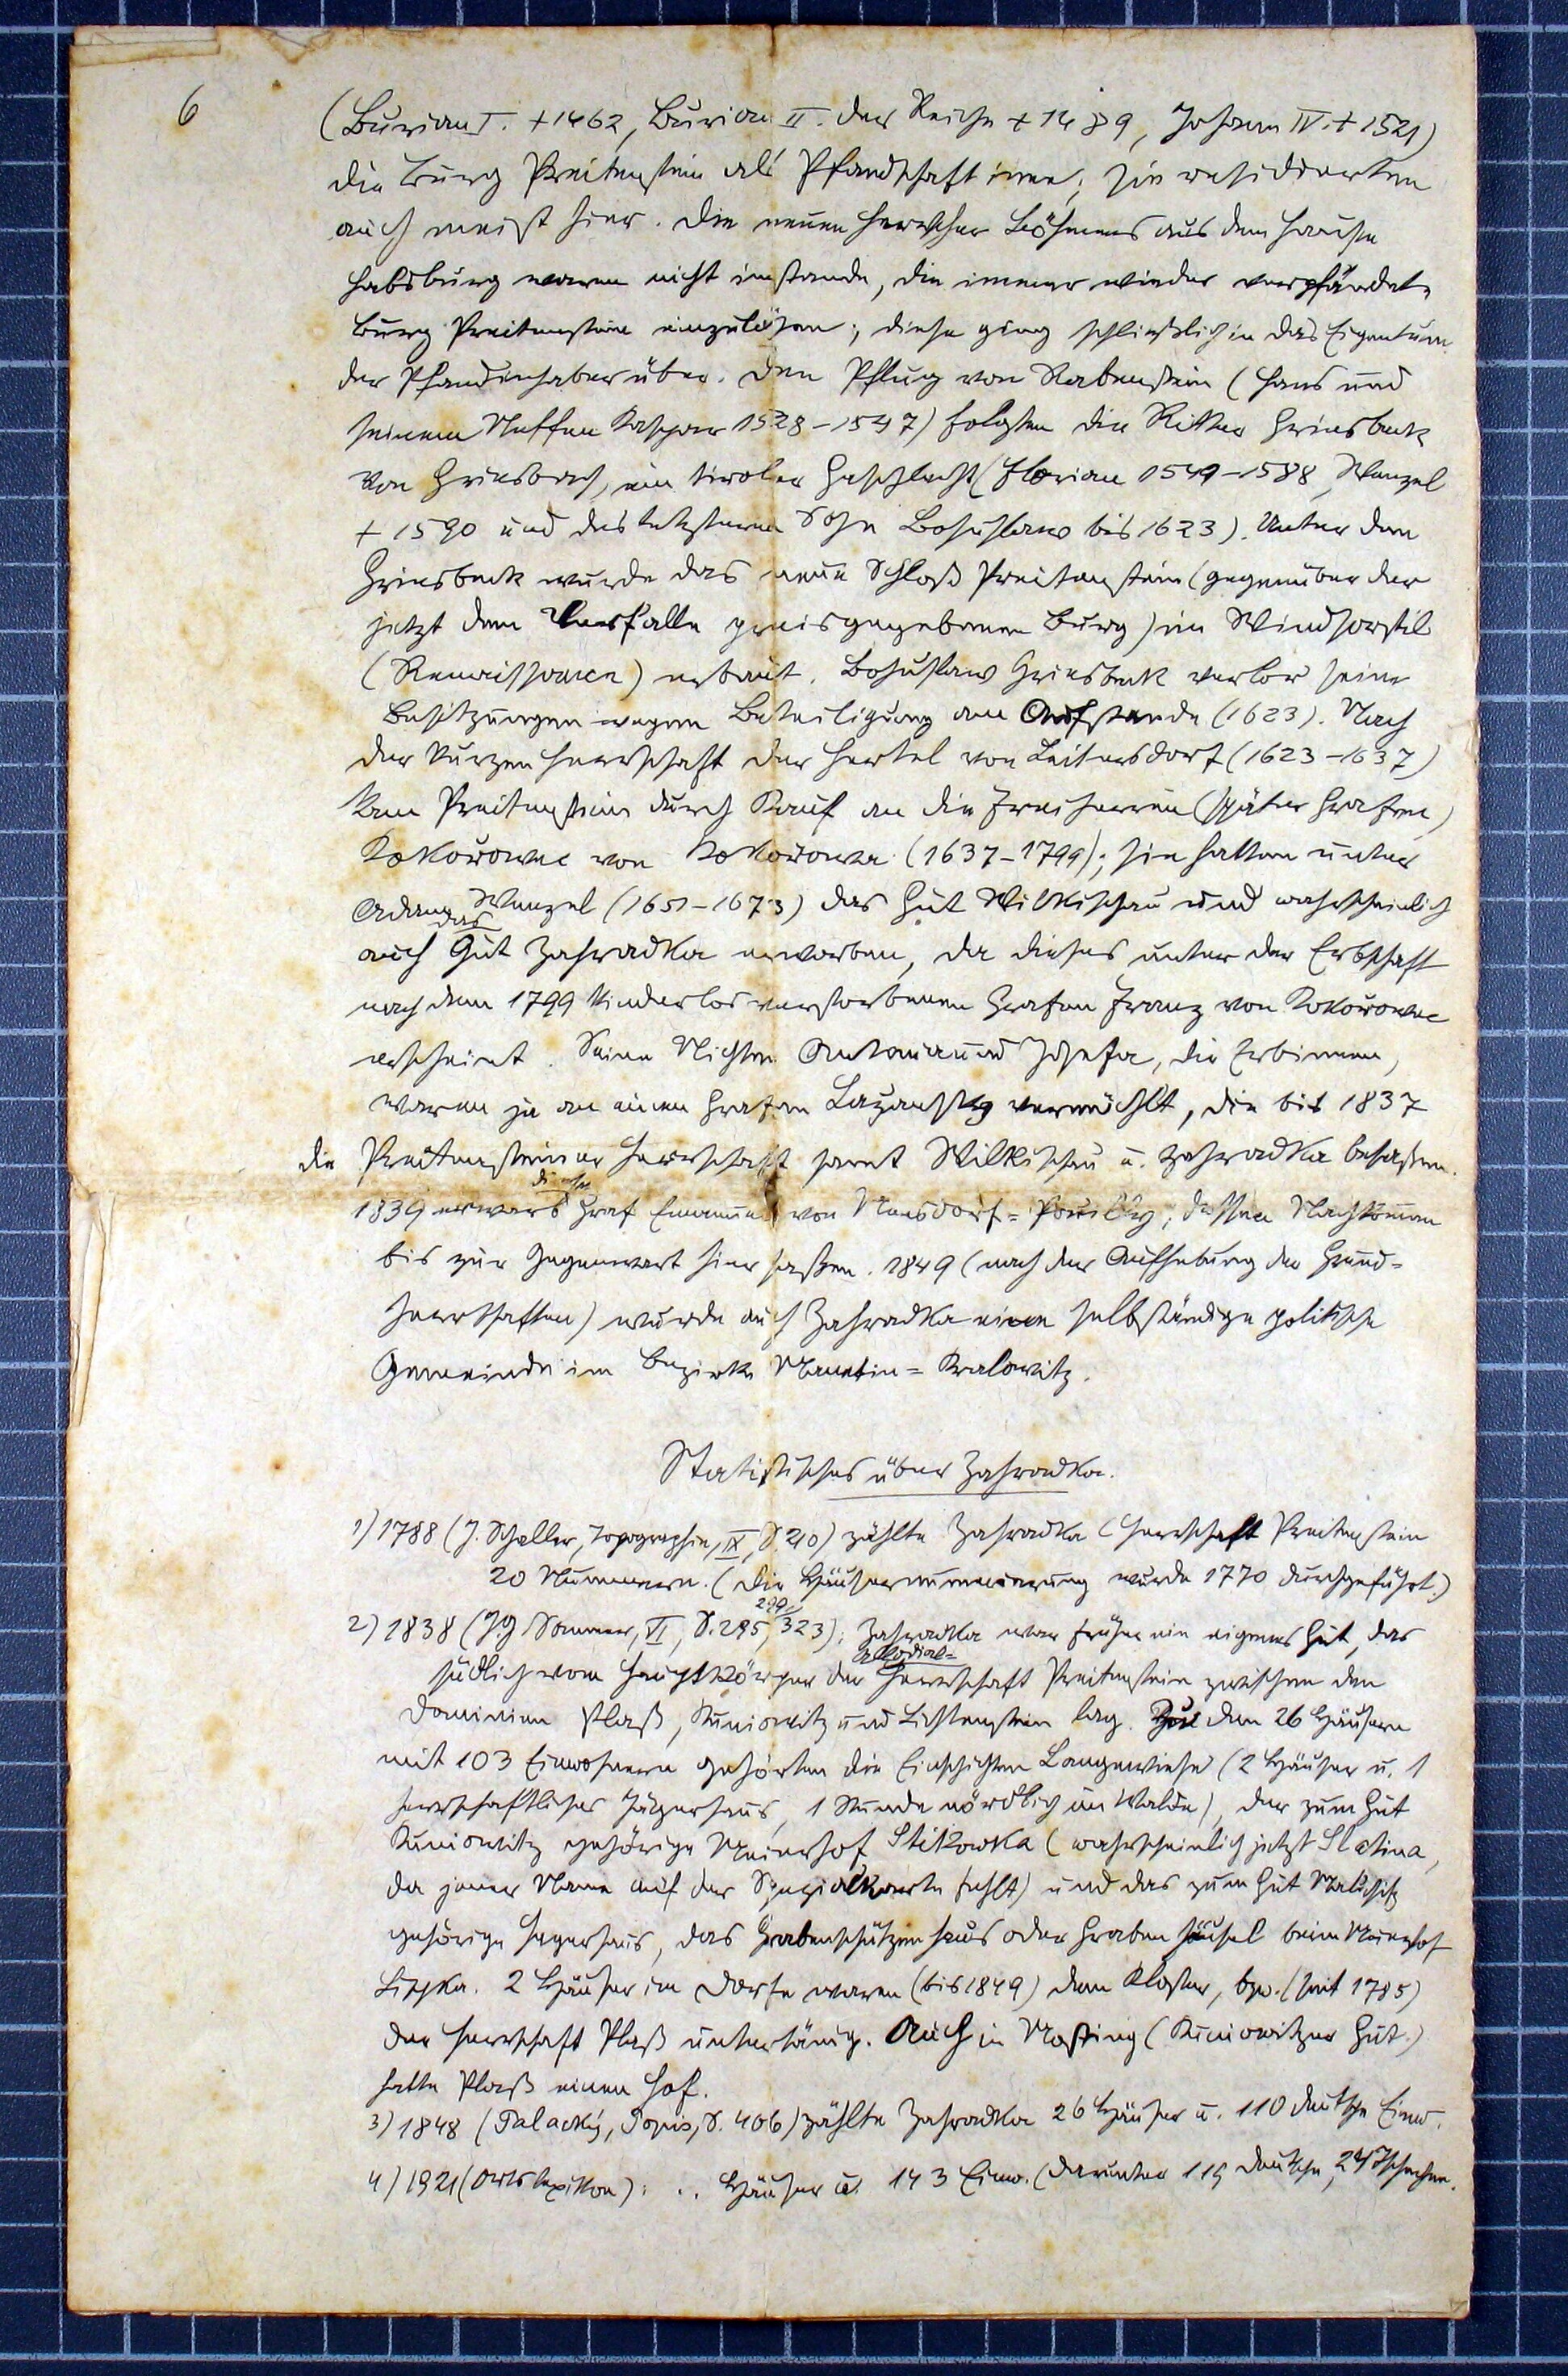 6
(Burian I. +1462, Burian II. der Reiche +1489, Johann IV. +1521)
die Burg Preitenstein als Pfandschaft inne; sie residierten
auch meist hier. Die neuen Herrscher Böhmens aus dem Hause
Habsburg waren nicht imstande, die immer wieder verpfändete
Burg Preitenstein einzulösen; diese ging schließlich in das Eigentum
der Pfandinhaber über. Den Pflug von Rabenstein (Hans und
seinem Neffen Kaspar 1528-1547) folgten die Ritter Griesbeck
von Griesbach, ein tiroler Geschlecht (Florian 1549-1588, Wenzel
+ 1590 und des letzteren Sohn Bohuslaw bis 1623). Unter den
Griesbeck wurde das neue Schloß Preitenstein (gegenüber der
jetzt dem Verfalle preisgegebenen Burg) im Windsorstil
(Renaissance) erbaut. Bohuslaw Griesbeck verlor seine
Besitzungen wegen Beteiligung am Aufstande (1623). Nach
der kurzen Herrschaft der Hertel von Leitersdorf (1623-1637)
kam Preitenstein durch Kauf an die Freiherren (später Grafen)
Kokořowec von Kokořowa (1637-1799); sie hatten unter
Adam Wenzel (1651-1673) das Gut Wilkischau und wahrscheinlich
auch das Gut Zahradka erworben, da dieses unter der Erbschaft
nach dem 1799 kinderlos verstorbenen Grafen Franz von Kokořowec
erscheint. Seine Nichten Antonia und Josefa, die Erbinnen,
waren je an einen Grafen Lazansky vermählt, die bis 1837
die Preitensteiner Herrschaft samt Wilkischau u. Zahradka besaßen.
1839 erwarb diese Graf Emanuel von Mensdorf=Pouilly, dessen Nachkommen
bis zur Gegenwart hier saßen. 1849 (nach der Aufhebung der Grund=
herrschaften) wurde auch Zahradka eine selbständige politische
Gemeinde im Bezirke Manetin=Kralowitz.
Statistisches über Zahradka.
1) 1788 (J. Schaller, Topographie, IX, S. 210) zählte Zahradka (Herrschaft Preitenstein
20 Nummern. (Die Häusernummerierung wurde 1770 durchgeführt.)
2) 1838 (JG Sommer, VI, S. 295, 299, 323): Zahradka war früher ein eigenes Gut, das
südlich vom Hauptkörper der Allodial=Herrschaft Preitenstein zwischen den
Dominien Plaß, Kuniowitz und Lichtenstein lag. Zu den 26 Häusern
mit 103 Einwohnern gehörten die Einschichten Langewiese (2 Häuser u. 1
herrschaftliches Jägerhaus, 1 Stunde nördlich im Walde), der zum Gut
Kuniowitz gehörige Meierhof Stikowka (wahrscheinlich jetzt Slatina,
da jener Name auf der Spezialkarte fehlt) und das zum Gut Malesitz
gehörige Hegerhaus, das Grabenschützenhaus oder Grabenhäusel beim Meierhof
Lipka. 2 Häuser im Dorfe waren (bis 1849) dem Kloster, bzw. (seit 1785)
der Herrschaft Plaß untertänig. Auch in Nosting (Kuniowitzer Gut)
hatte Plaß einen Hof.
3) 1848 (Palacký, Popis, S. 406) zählte Zahradka 26 Häuser u. 110 deutsche Einw.
4) 1921 (Ortslexikon): .. Häuser u. 143 Einw. (darunter 119 Deutsche, 24 Tschechen.